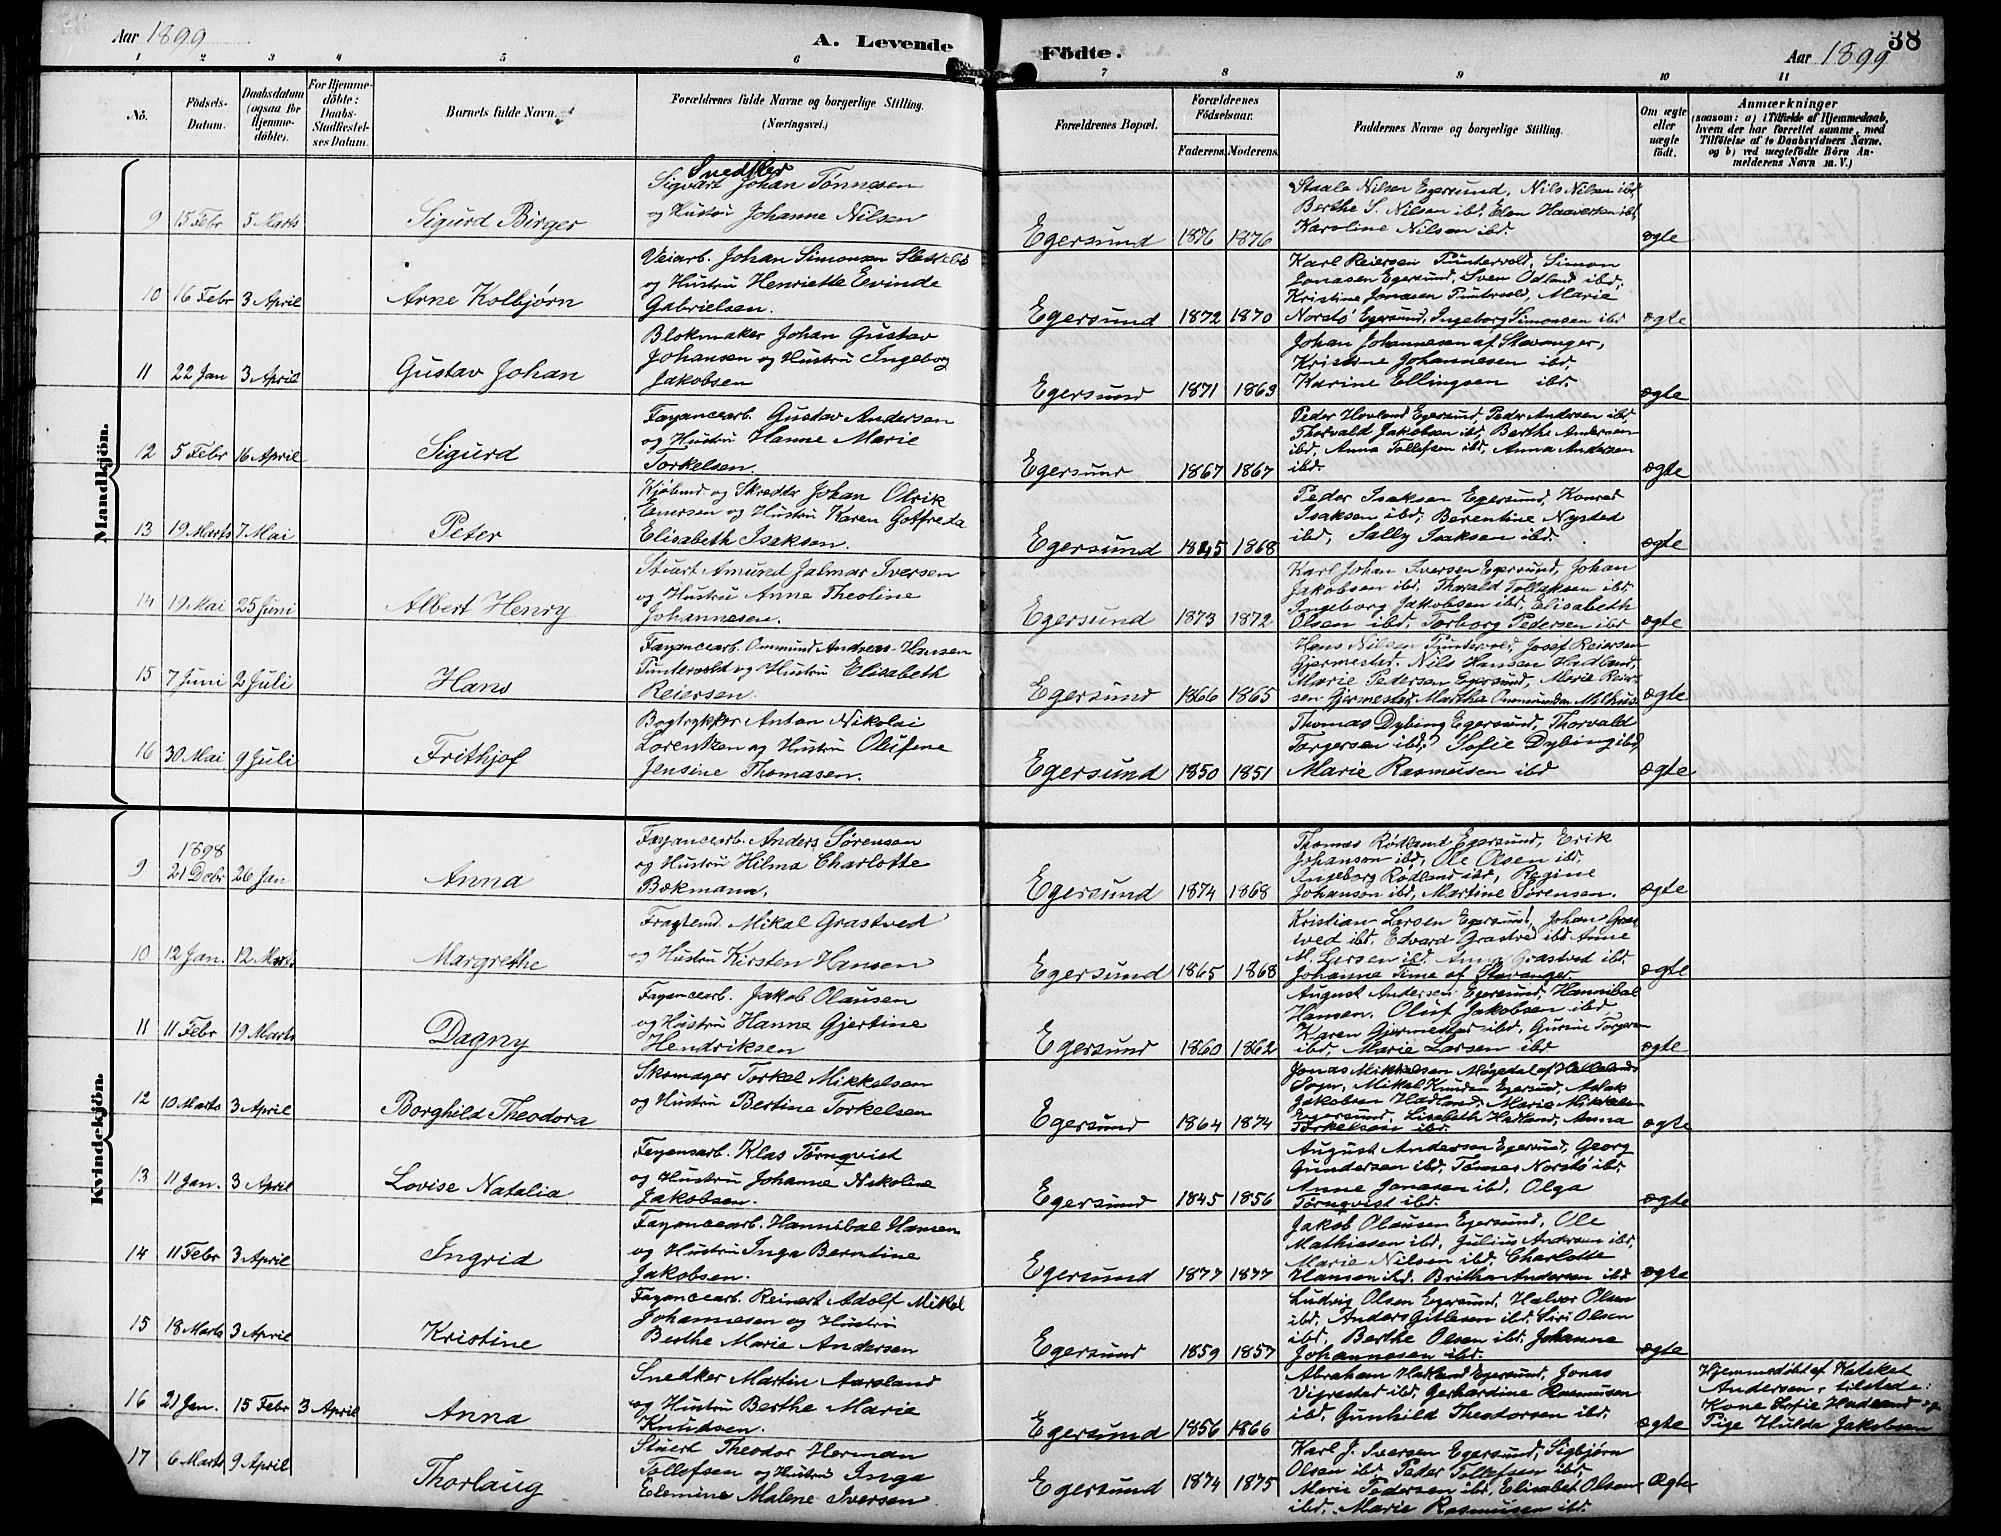 Aar 1899
A. Levende Födte.
38
Aar 1899
1 2 3 4 5 6 7 8 9 10 11
No.
Födsels-Datum.
Daabsdatum (ogsaa for Hjemme-döbte).
For Hjemme-döbte: Daabs-Stadfæstel-ses Datum.
Barnets fulde Navn.
Forældrenes fulde Navne og borgerlige Stilling. (Næringsvei.)
Forældrenes Bopæl.
Forældrenes Födselsaar.
Faderens. Moderens.
Faddernes Navne og borgerlige Stilling.
Om ægte eller uægte födt.
Anmærkninger
(saasom: a) i Tilfælde af Hjemmedaab, hvem der har forrettet samme, med Tilföielse af to Daabsvidners Navne. og b) ved uægtefödte Börn Anmelderens Navn m. V.)
Mandkjön.
9 15 Febr 5 Marts Sigurd Birger
Snedker
Sigvart Johan Tönnesen
og Hustru Johanne Nilsen
Egersund 1876 1876
Staale Nilsen Egersund, Nils Nilsen ibd
Berthe S. Nilsen ibd, Elen Haaversen ibd,
Karoline Nilsen ibd.
ægte
10 16 Febr 3 April Arne Kolbjørn
Veiarb. Johan Simonsen Slettebø
og Hustru Henriette Evinde
Gabrielsen.
Egersund 1872 1870
Karl Reiersen Puntervold, Simon
Jonasen Egersund, Sven Odland ibd,
Kristine Jonasen Puntervold, Marie
Norstö Egersund, Ingeborg Simonsen ibd
ægte
11 22 Jan 3 April Gustav Johan
Blokmaker Johan Gustav
Johansen og Hustru Ingeborg
Jakobsen
Egersund 1871 1863
Johan Johannesen af Stavanger,
Kristine Johannesen ibd.
Karine Ellingsen ibd.
ægte
12 5 Febr 16 April Sigurd
Fayancearb. Gustav Andersen
og Hustru Hanne Marie
Torkelsen.
Egersund 1867 1867
Peder Hovland Egersund, Peder Andersen ibd,
Thorvald Jakobsen ibd, Berthe Andersen
ibd, Anna Tollefsen ibd, Anna Andersen
ibd.
ægte
13 19 Marts 7 Mai Peter
Kjøbmd. og Skredder Johan Olrik
Enersen og Hustru Karen Gotfreda
Elisabeth Isaksen.
Egersund 1845 1868
Peder Isaksen Egersund, Konrad
Isaksen ibd, Berentine Nysted
ibd, Sally Isaksen ibd.
ægte
14 19 Mai 25 Juni Albert Henry
Stuart Amund Jalmar Iversen
og Hustru Anne Theoline
Johannesen.
Egersund 1873 1872
Karl Johan Iversen Egersund, Johan
Jakobsen ibd, Tharald Tollaksen ibd,
Ingeborg Jakobsen ibd, Elisabeth
Olsen ibd, Torborg Pedersen ibd
ægte
15 7 Juni 2 Juli Hans
Fayancearb. Ommund Andreas Hansen
Puntervold og Hustru Elisabeth
Reiersen.
Egersund 1866 1865
Hans Nilsen Puntervold, Josef Reiersen
Gjermestad, Nils Hansen Hadland,
Marie Pedersen Egersund, Marie Reier-
sen Gjermestad, Martha Ommundsen
ægte
16 30 Mai 9 Juli Frithjof
Bogtrykker Anton Nikolai
Lorentzen og Hustru Olufine
Jensine Thomasen.
Egersund 1850 1851
Thomas Dybing Egersund, Thorvald
Torgersen ibd, Sofie Dybing ibd,
Marie Rasmusen ibd
ægte
Kvindekjön.
9 1898 21 Debr 26 Jan Anna
Fayancearb. Anders Sørensen
og Hustru Hilma Charlotte
Bokmann.
Egersund 1874 1868
Thomas Rødland Egersund, Erik
Johanson ibd, Ole Olsen ibd.
Ingeborg Rødland ibd, Regine
Johanson ibd, Martine Sørensen.
ægte
10 12 Jan. 12 Marts Margrethe
Fragtemd. Mikal Grastved
og Hustru Kirsten Hansen
Egersund 1865 1868
Kristian Larsen Egersund, Johan Gras-
tved ibd. Edvard Grastved ibd. Anne
M. Larsen ibd. Anna Grastved ibd.
Johanne Time af Stavanger
ægte
11 11 Febr 19 Marts Dagny
Fayancearb. Jakob Olausen
og Hustru Hanne Gjertine
Hendriksen
Egersund 1860 1862
August Andersen Egersund, Hannibal
Hansen, Oluf Jakobsen ibd,
Karen Gjermestad ibd, Gurine Torgersen
ibd, Marie Larsen ibd
ægte
12 10 Marts 3 April Borghild Theodora
Skomager Torkel Mikkelsen
og Hustru Bertine Torkelsen
Egersund 1864 1874
Jonas Mikkelsen Møgedal af Helleland
Sogn, Mikal Knudsen Egersund,
Jakobsen Hadland, Marie Mikkelsen
Egersund, Lisabeth Hadland, Anna
Torkelsen ibd.
ægte
13 11 Jan. 3 April Lovise Natalia
Feyensarb. Klas Törnqvist
og Hustru Johanne Nikoline
Jakobsen.
Egersund 1845 1856
August Anderson Egersund, Georg
Gundersen ibd, Tønnes Norstö ibd.
Anne Jonasen ibd, Olga
Törnqvist ibd.
ægte
14 11 Febr 3 April Ingrid
Fayancearb. Hannibal Hansen
og Hustru Inga Berntine
Jakobsen.
Egersund 1877 1877
Jakob Olausen Egersund, Ole
Mathiasen ibd, Julius Andersen ibd,
Marie Nilsen ibd, Charlotte
Hansen ibd, Britha Andersen ibd
ægte
15 18 Marts 3 April Kristine
Fayancearb. Reinert Adolf Mikal
Johannesen og Hustru
Berthe Marie Andersen
Egersund 1859 1857
Ludvig Olsen Egersund, Halvor Olsen
ibd, Anders Gitlesen ibd, Siri Olsen
ibd, Berthe Olsen ibd, Johanne
Johannesen ibd.
ægte
16 21 Jan. 15 Febr 3 April Anna
Snedker Martin Aarsland
og Hustru Berthe Marie
Knudsen.
Egersund 1856 1866
Abraham Hadland Egersund, Jonas
Vigrestad ibd, Gerhardine Rasmusen
ibd, Gunhild Theodorsen ibd.
ægte
Hjemmedöbt af Kateket
Andersen, tilstede:
Kone Sofie Hadland og
Pige Hulda Jakobsen
17 6 Marts 9 April Thorlaug
Stuert Theodor Herman
Tollefsen og Hustru Inga
Elemine Malene Iversen
Egersund 1874 1875
Karl J. Iversen Egersund, Sigbjørn
Olsen ibd, Peder Tollefsen ibd,
Marie Pedersen ibd, Elisabet Olsen
ibd, Marie Rasmusen ibd.
Ægte